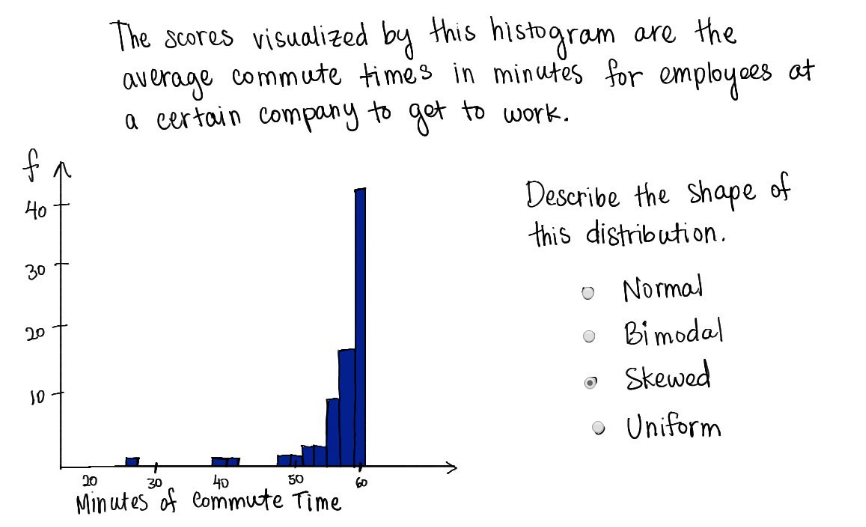 The scores visualized by this histogram are the
average commute times in minutes for employees at
a certain company to get to work.
f
40
30
20
10
20 30 40 50 60
Minutes of Commute Time
Describe the shape of
this distribution.
Normal
Bimodal
Skewed
Uniform